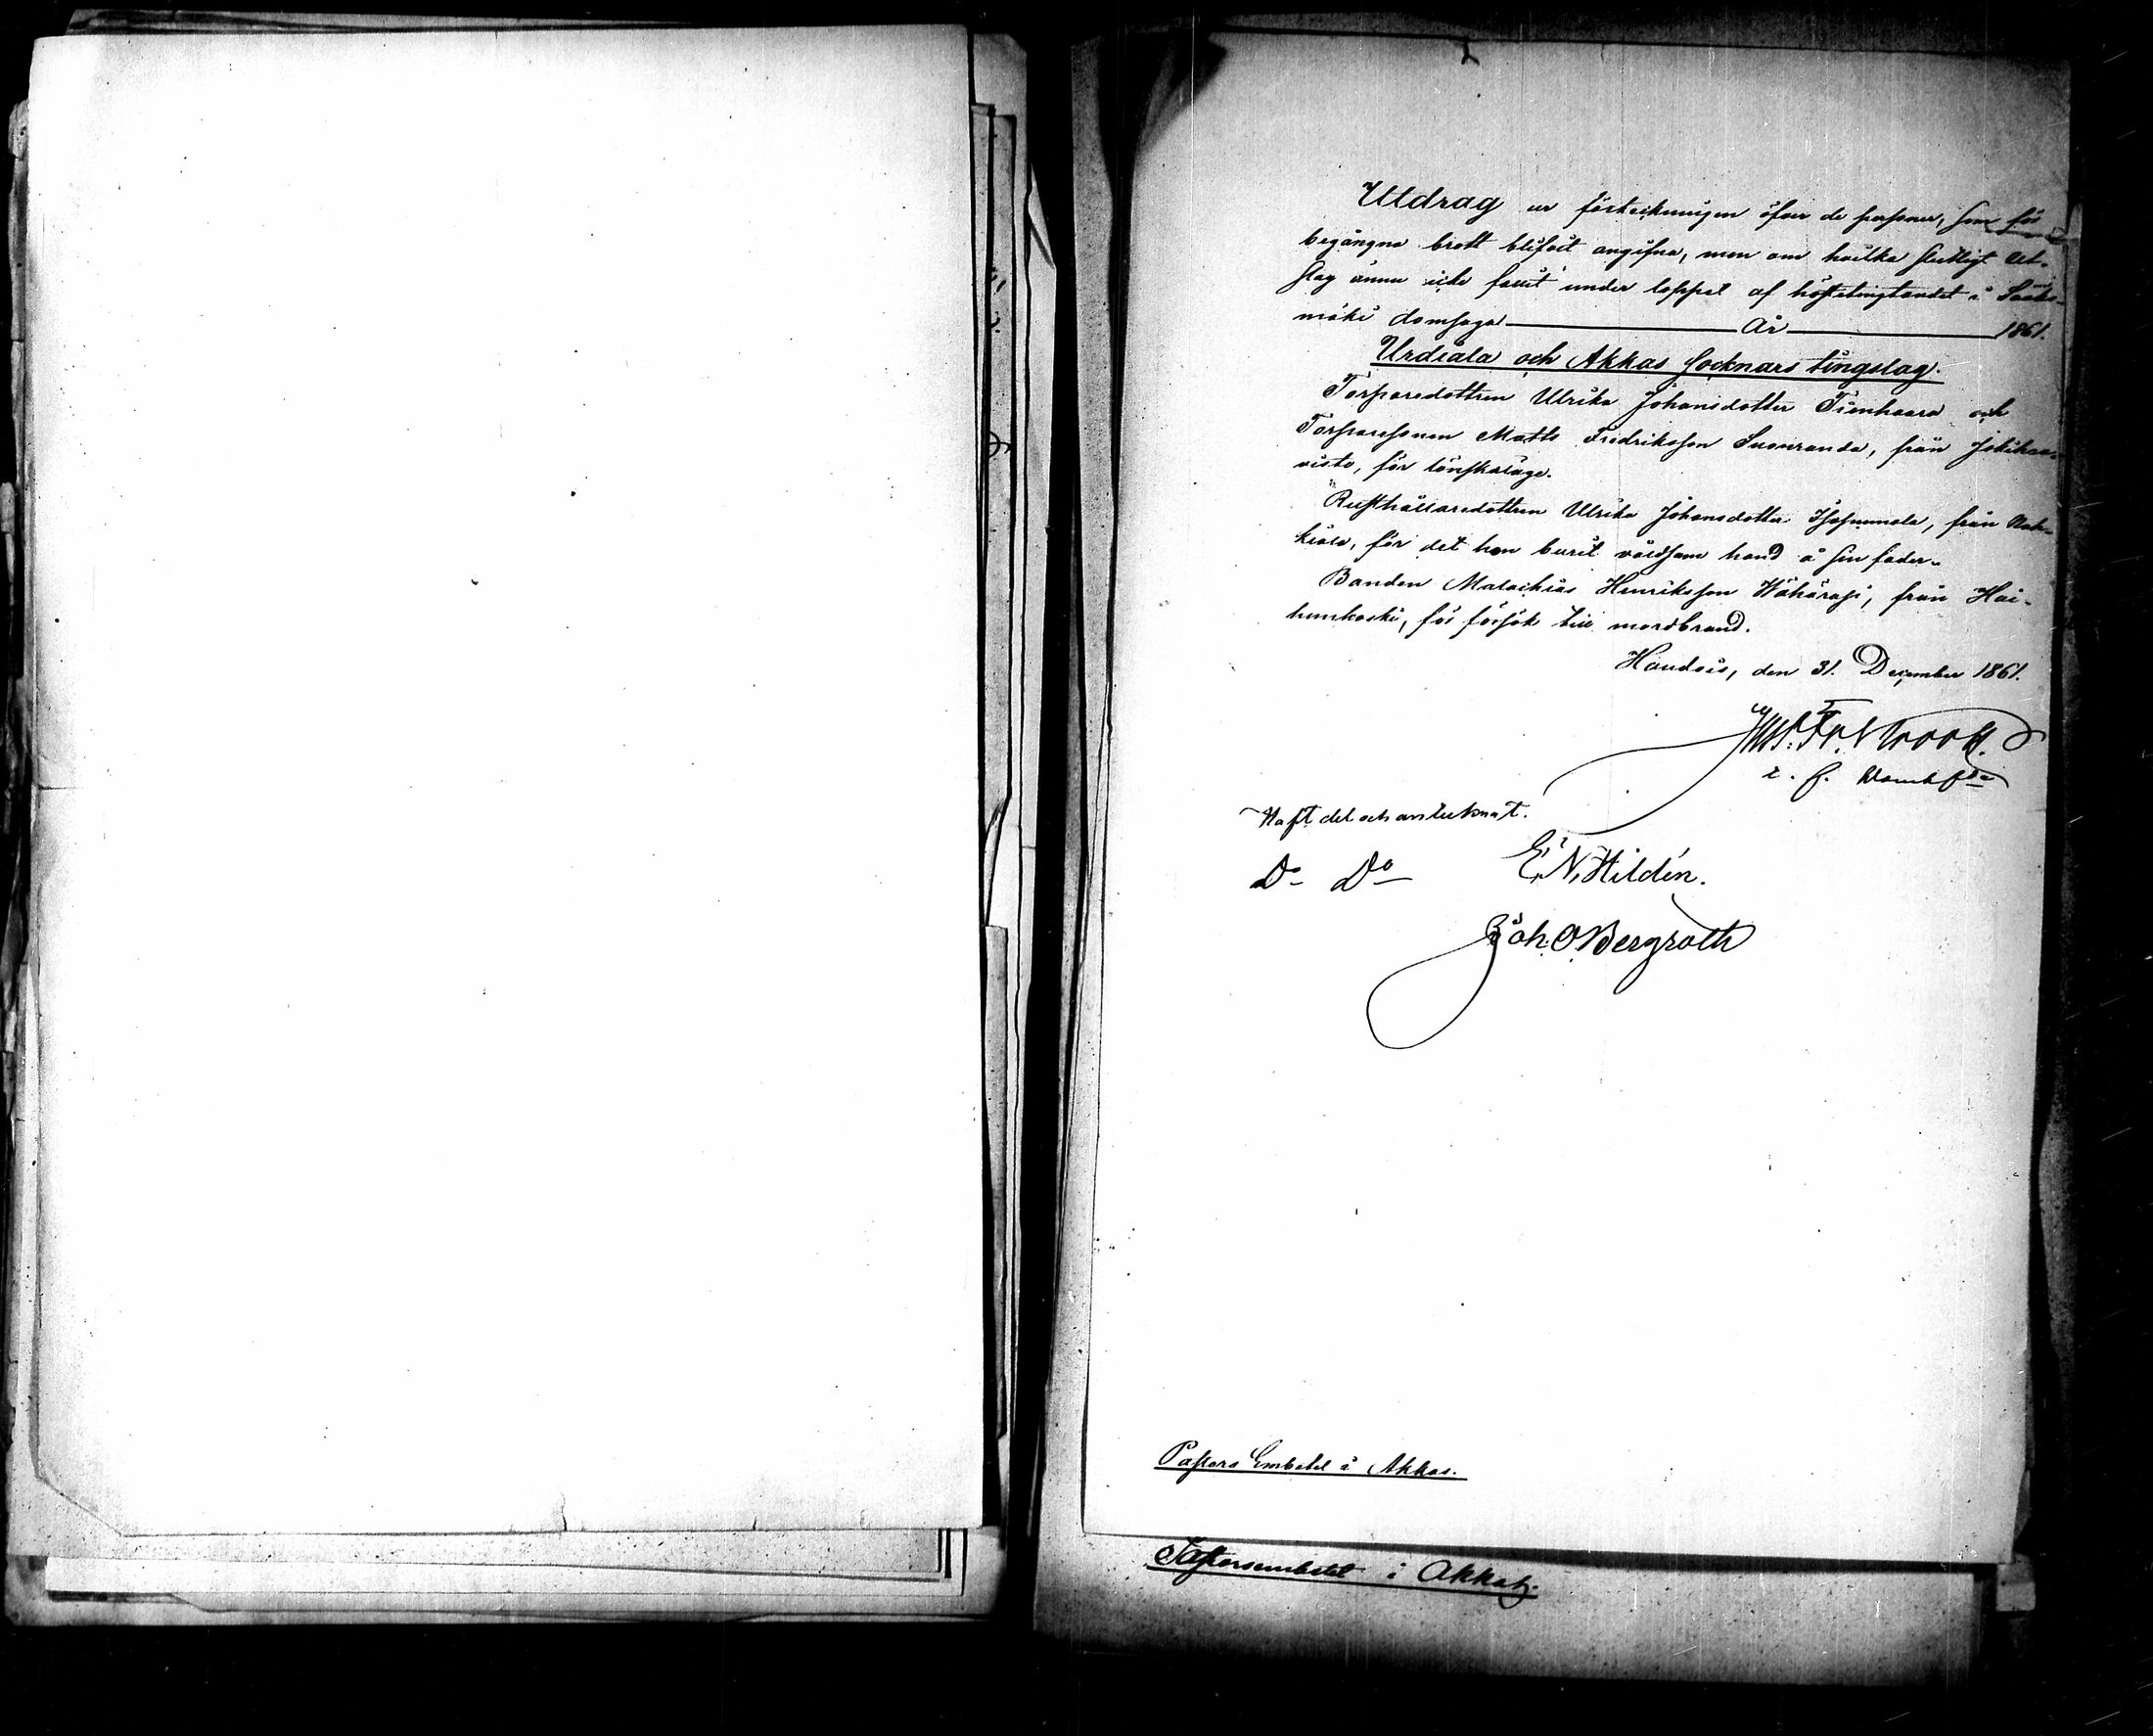 Utdrag ur förteckningen öfver de personer, som för
begångna brott blifvit angifna, men om hvilka slutligt ut-
slag ännu icke fallit under loppet af hösttingtaudet i Sääks-
mäki domsaga — År — 1861.
Urdiala och Akkas Socknars tingslag.
Torparedottren Ulrika Johansdotter Tienhaara och
Torparesonen Matts Fredriksson Suonranda, från
visto, för lönskaläge.
Rusthållaredottren Ulrika Johansdotter från
kiala, för det hon burit våldsam hand å sin fader.
Bonden Malachias Henriksson Wähäräpi, från Hai-
hunkoski, för försök till mordbrand.
Haudois, den 31. December 1861.
e. f. Domhfde
Haft del och antecknat.
Do Do E. N. Hildén.
Joh. O. Bergroth
Pastors Embetet i Akkas.
Pastorsembetet i Akkas.